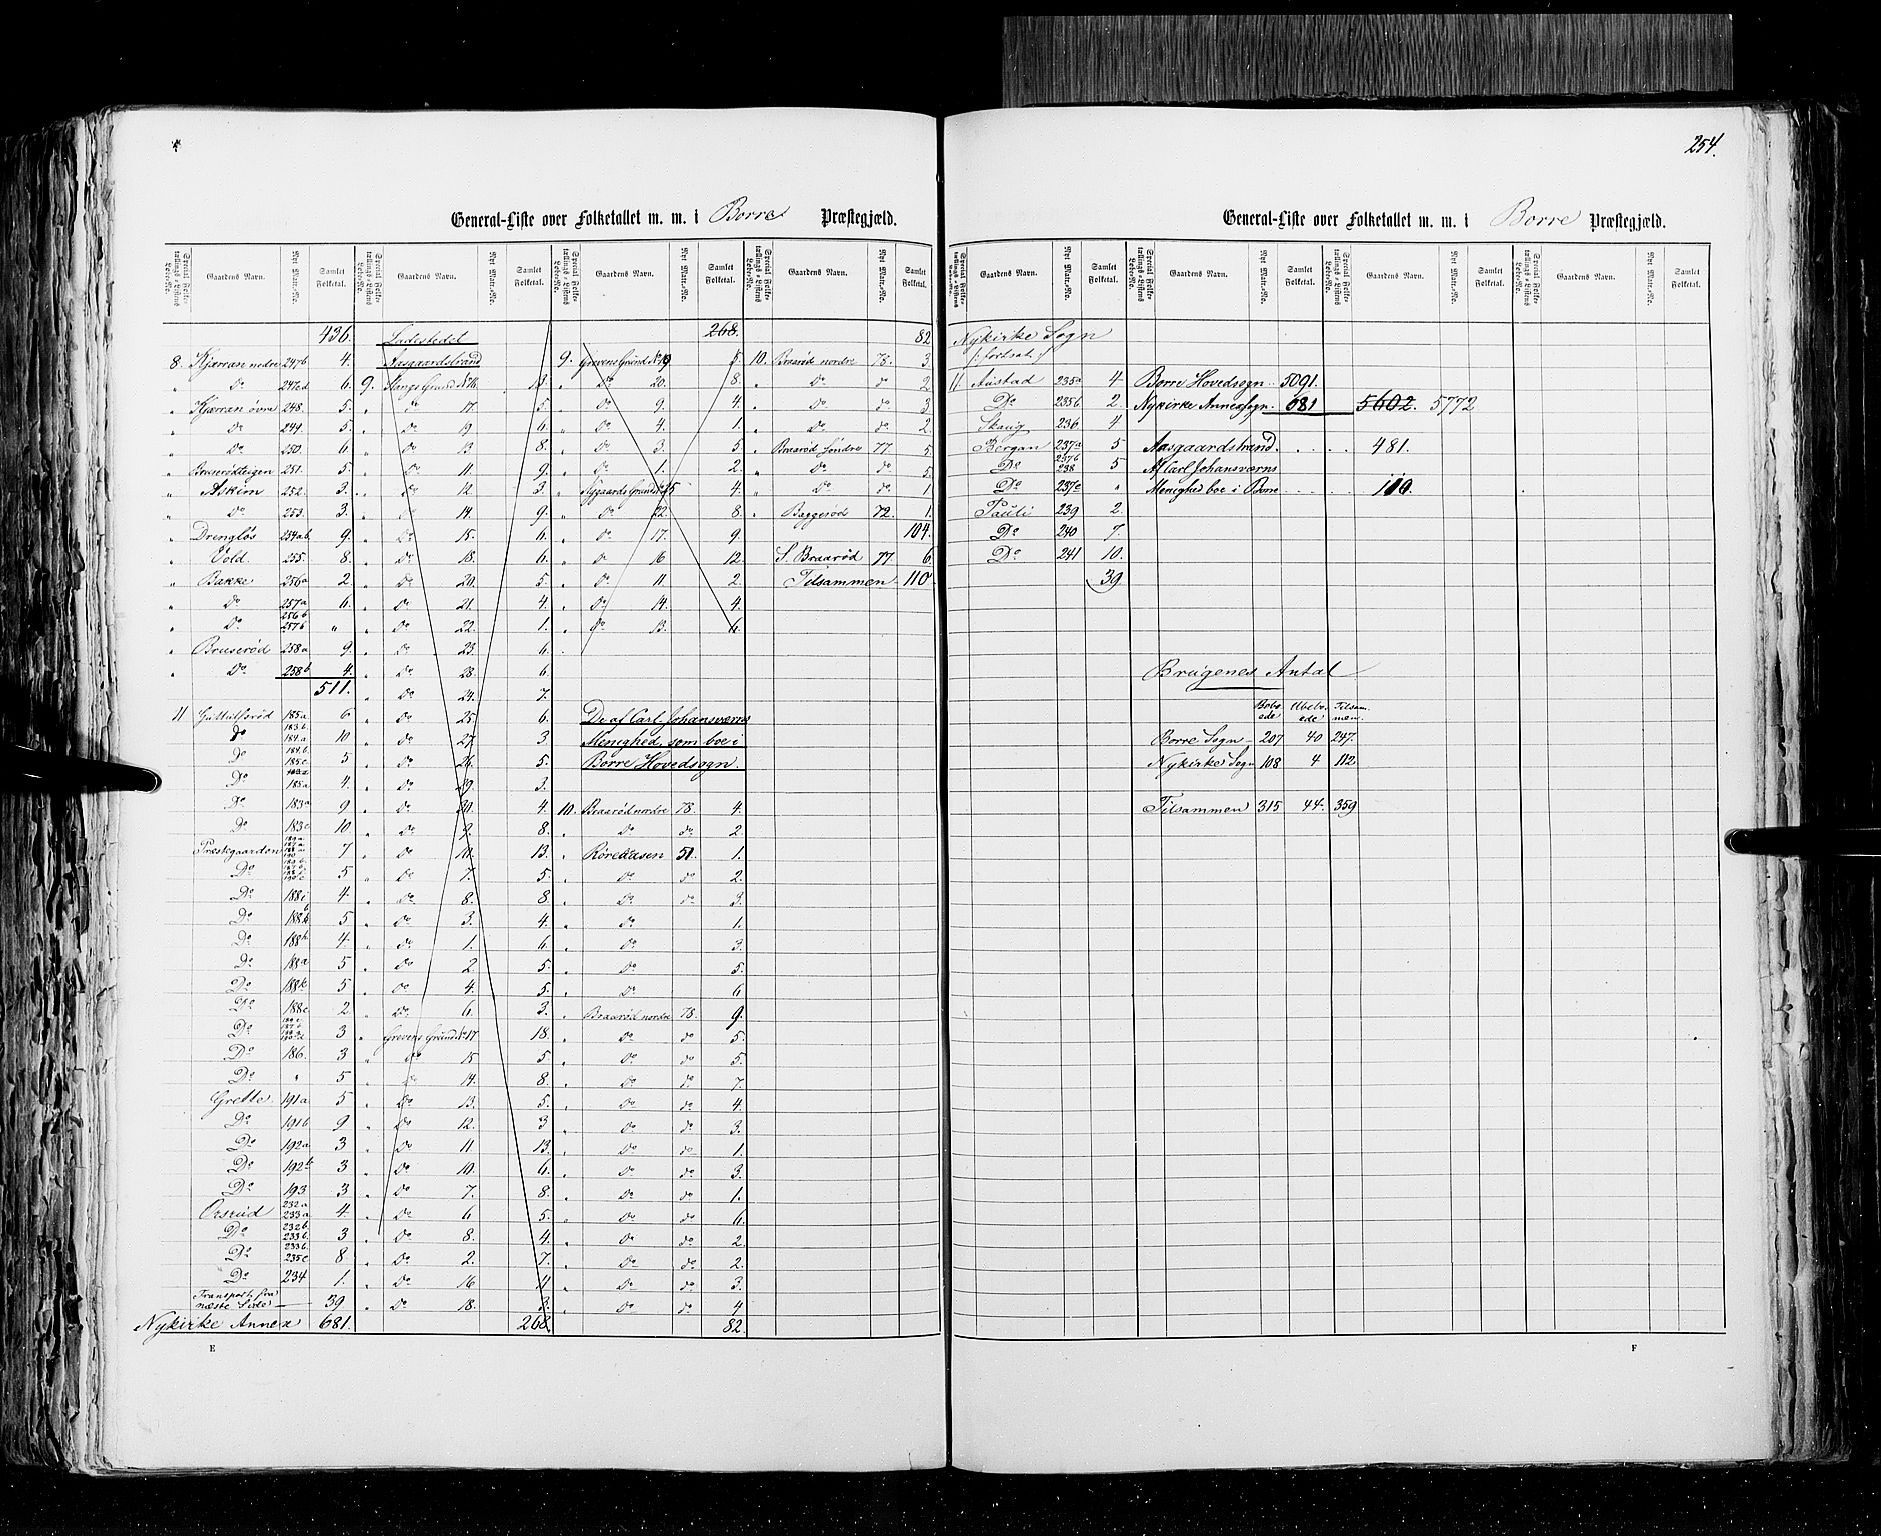 254.
General-Liste over Folketallet m. m. i Borre Præstegjæld.
Special Folketællings-Listens Løbe-No. Gaardens Navn. Nyt Matr.-No. Samlet Folketal. Special Folketællings-Listens Løbe-No. Gaardens Navn. Nyt Matr.-No. Samlet Folketal. Special Folketællings-Listens Løbe-No. Gaardens Navn. Nyt Matr.-No. Samlet Folketal. Special Folketællings-Listens Løbe-No. Gaardens Navn. Nyt Matr.-No. Samlet Folketal.
436. Ladestedet 268. 82
8. Kjærran nedre 247b 4. Aasgaardstrand 9. Grevens Grund No 19 10. Braarød nordre 78. 3
" Do 247c.d 6. 9. Stangs Grund No 16. " Do 20. 8. " Do do 2.
" Kjærran øvre 248. 5. " Do 17. 5. " Do 9. 4. " Do do 3
" Do 249. 5. " Do 19 6. " Do 4. 1. " Do do 2.
" Do 250. 6 " Do 13 8. " Do 3. 5 " Braarød søndre 77. 5
" Bruserødteigen 251. 5. " Do 11. 9. " Do 1. 2. " Do do 5.
" Askim 252. 3. " Do 12. 3. " Nygaards Grund No 15 4. " Do do 1
" Do 253. 3. " Do 14. 9. " Do 22. 8. " Baggerød 72. 1.
" Drengløs 254ab. 9. " Do 15. 6. " Do 17. 9. 104.
" Vold 255. 8. " Do 18. 6. " Do 16 12. S. Braarød 77 6.
" Bakke 256a 2. " Do 20. 5. " Do 11 2. Tilsammen 110.
" Do 257a 6. " Do 21. 4. " Do 14. 4.
" Do 256b 257b " " Do 22. 1. " Do 13. 6.
" Bruserød 258a 9. " Do 23. 6.
" Do 258b 4. " Do 28. 6.
511. " Do 24. 7.
11 185a 6 " Do 25. 6. De af Carl Johansværns
Do 183.b. 184.a 10 " Do 27. 3 Menighed, som boe i
Do 184.b. 185.c. 5 " Do 26. 5. Borre Hovedsogn.
Do 185a 4. " Do 29. 3.
Do 183a 9 " Do 30. 4. 10. Braarød nordre 78. 4.
Do 183c 10 " Do 9. 8. " Do do 2.
Præstegaarden 7 " Do 10. 13. " Røreaasen 51. 1.
Do 5 " Do 7. 5. " Do do 2.
Do 188i 4 " Do 8. 8. " Do do 3.
Do 5 " Do 3. 4. " Do 1.
Do 188h 4. " Do 1. 6. " Do 3.
Do 188a 5 " Do 2. 5. " Do 5.
Do 188k 5 " Do 4. 5. " Do 6
Do 188e 2. " Do 6. 3. " Braarød nordre 78. 9.
Do 3 " Grevens Grund No 17 18. " Do do 5.
Do 186. 3 " Do 15 5. " Do do 5.
Do " 5 " Do 14. 8. " Do do 7.
Grette 191a 5 " Do 13. 5. " Do do 4.
Do 191b 9 " Do 12. 3 " Do do 3.
Do 192a 3 " Do 11 13. " Do do 1.
Do 192b 3 " Do 10. 6. " Do do 3.
Do 193 3 " Do 7. 8. " Do do 1.
Orsrud 232a 233a 4. " Do 6 5. " Do do 6.
Do 232b. 233b. 3 " Do 8. 4. " Do do 2.
Do 8. " Do 2. 7. " Do do 2.
Do 234 1. " Do 16 11 " Do do 3.
Transport fra
næste Side 39 " Do 18. 3. " Do do 4
Nykirke Annex 681. 268. 82.
E
General-Liste over Folketallet m. m. i Borre Præstegjæld.
Special Folketællings-Listens Løbe-No. Gaardens Navn. Nyt Matr.-No. Samlet Folketal. Special Folketællings-Listens Løbe-No. Gaardens Navn. Nyt Matr.-No. Samlet Folketal. Special Folketællings-Listens Løbe-No. Gaardens Navn. Nyt Matr.-No. Samlet Folketal. Special Folketællings-Listens Løbe-No. Gaardens Navn. Nyt Matr.-No. Samlet Folketal.
Nykirke Sogn
(: fortsat :)
11 Austad 235a 4 Borre Hovedsogn 5091.
Do 235b 2. Nykirke Annexsogn. 681 5602. 5772
Skaug 236 4
Bergan 237a 5 Aasgaardstrand 481.
Do 237b 238 5 Af Carl Johansværns
Do 237c " Menighed boe i Borre 110.
Pauli 239 2.
Do 240 7.
Do 241 10.
39.
Brugenes Antal
Beboede Ubeboede Tilsammen.
Borre Sogn 207 40 247.
Nykirke Sogn 108 4 112
Tilsammen 315 44. 359
F